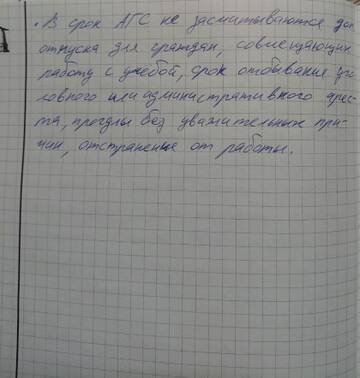 • В срок АГС не засчитываются доп.
отпуска для граждан, совмещающих
работу с учёбой, срок отбывание уго
ловного или административного арес-
та, прогулы без уважительных при-
чин, отстранение от работы.